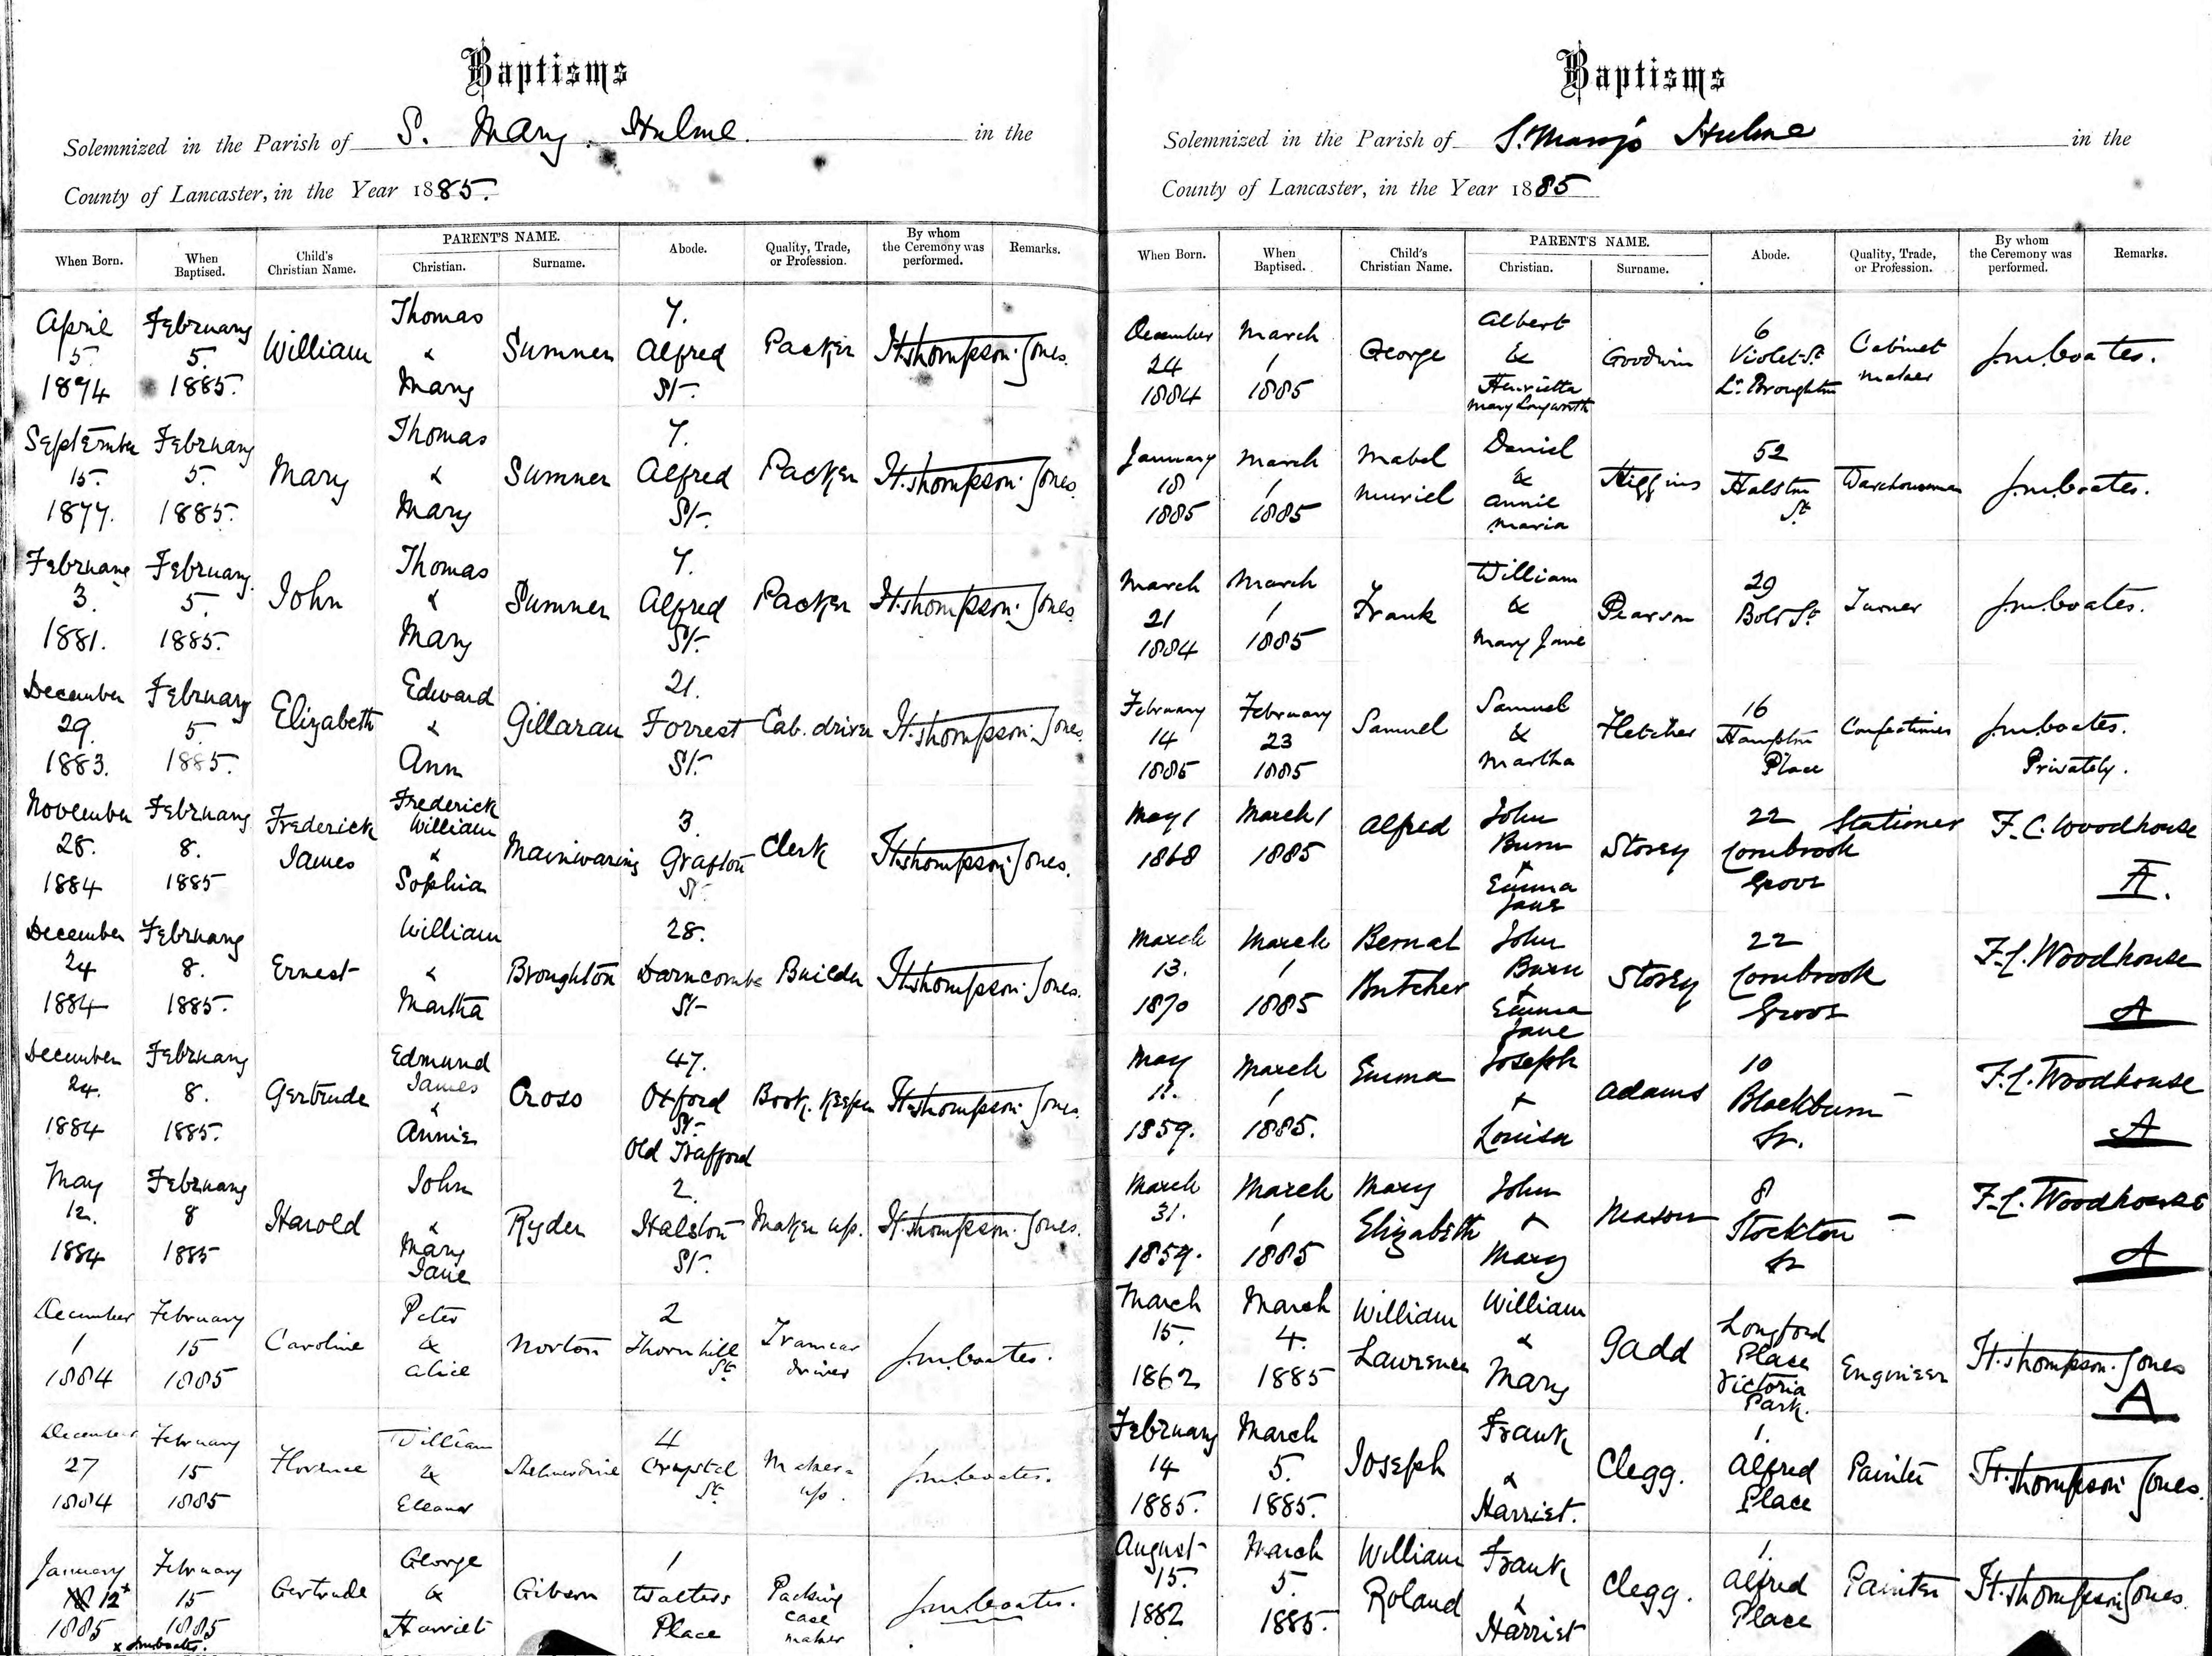 Baptisms
Solemnized in the Parish of S. Mary. Hulme. in the
County of Lancaster, in the Year 1885.
When Born.
When Baptised.
Child's Christian Name.
PARENT'S NAME.
Christian.
Surname.
Abode.
Quality, Trade, or Profession.
By whom the Ceremony was performed.
Remarks.
April 5. 1874 February 5. 1885. William Thomas & Mary Sumner 7. Alfred St. Packer H. Thompson. Jones.
September 15. 1877. February 5. 1885. Mary Thomas & Mary Sumner 7. Alfred St. Packer H. Thompson. Jones.
February 3. 1881. February 5. 1885. John Thomas & Mary Sumner 7. Alfred St. Packer H. Thompson. Jones.
December 29. 1883. February 5. 1885. Elizabeth Edward & Ann Gillarau 21. Forrest St. Cab. driver H. Thompson. Jones.
November 28. 1884 February 8. 1885 Frederick James Frederick William & Sophia Mainwaring 3. Grafton St. Clerk H. Thompson Jones.
December 24 1884 February 8. 1885. Ernest William & Martha Broughton 28. Darncombe St. Builder H. Thompson. Jones.
December 24. 1884 February 8. 1885. Gertrude Edmund James & Annie Cross 47. Oxford St. Old Trafford Book. Keeper H. Thompson. Jones.
May 12. 1884 February 8 1885 Harold John & Mary Jane Ryder 2. Halston St. Maker up. H. Thompson. Jones.
December 1 1884 February 15 1885 Caroline Peter & Alice Norton 2 Thornhill St. Tramcar driver J.M. Coates.
December 27 1884 February 15 1885 Florence William & Eleanor Shelmerdine 4 Crystal St. Maker-up. J.M. Coates.
January 12 x 1885 February 15 1885 Gertrude George & Harriet Gibson 1 Walters Place Packing case maker J.M. Coates.
x J.M. Coates.
Baptisms
Solemnized in the Parish of S. Mary's Hulme in the
County of Lancaster, in the Year 1885
When Born.
When Baptised.
Child's Christian Name.
PARENT'S NAME.
Christian.
Surname.
Abode.
Quality, Trade, or Profession.
By whom the Ceremony was performed.
Remarks.
December 24 1884 March 1 1885 George Albert & Henrietta Mary Longworth Goodwin 6 Violet St. Lr. Broughton Cabinet maker J.M. Coates.
January 18 1885 March 1 1885 Mabel Muriel Daniel & Annie Maria Higgins 52 Halston St. Warehouseman J.M. Coates.
March 21 1884 March 1 1885 Frank William & Mary Jane Pearson 29 Bolt St. Turner J.M. Coates.
February 14 1885 February 23 1885 Samuel Samuel & Martha Fletcher 16 Hampton Place Confectioner J.M. Coates. Privately.
May 1 1868 March 1 1885 Alfred John Burn & Emma Jane Storey 22 Cornbrook Grove Stationer F.C. Woodhouse A.
March 13. 1870 March 1 1885 Bernal Butcher John Burn & Emma Jane Storey 22 Cornbrook Grove F.C. Woodhouse A
May 11. 1859. March 1 1885. Emma Joseph & Louisa Adams 10 Blackburn St. — F.C. Woodhouse A
March 31. 1859. March 1 1885 Mary Elizabeth John & Mary Mason 8 Stockton St — F.C. Woodhouse A
March 15. 1862 March 4. 1885 William Lawrence William & Mary Gadd Longford Place Victoria Park. Engineer H. Thompson. Jones A
February 14 1885. March 5. 1885. Joseph Frank & Harriet. Clegg. 1. Alfred Place Painter H. Thompson Jones.
August 15. 1882 March 5. 1885. William Roland Frank & Harriet Clegg. 1. Alfred Place Painter H. Thompson Jones.